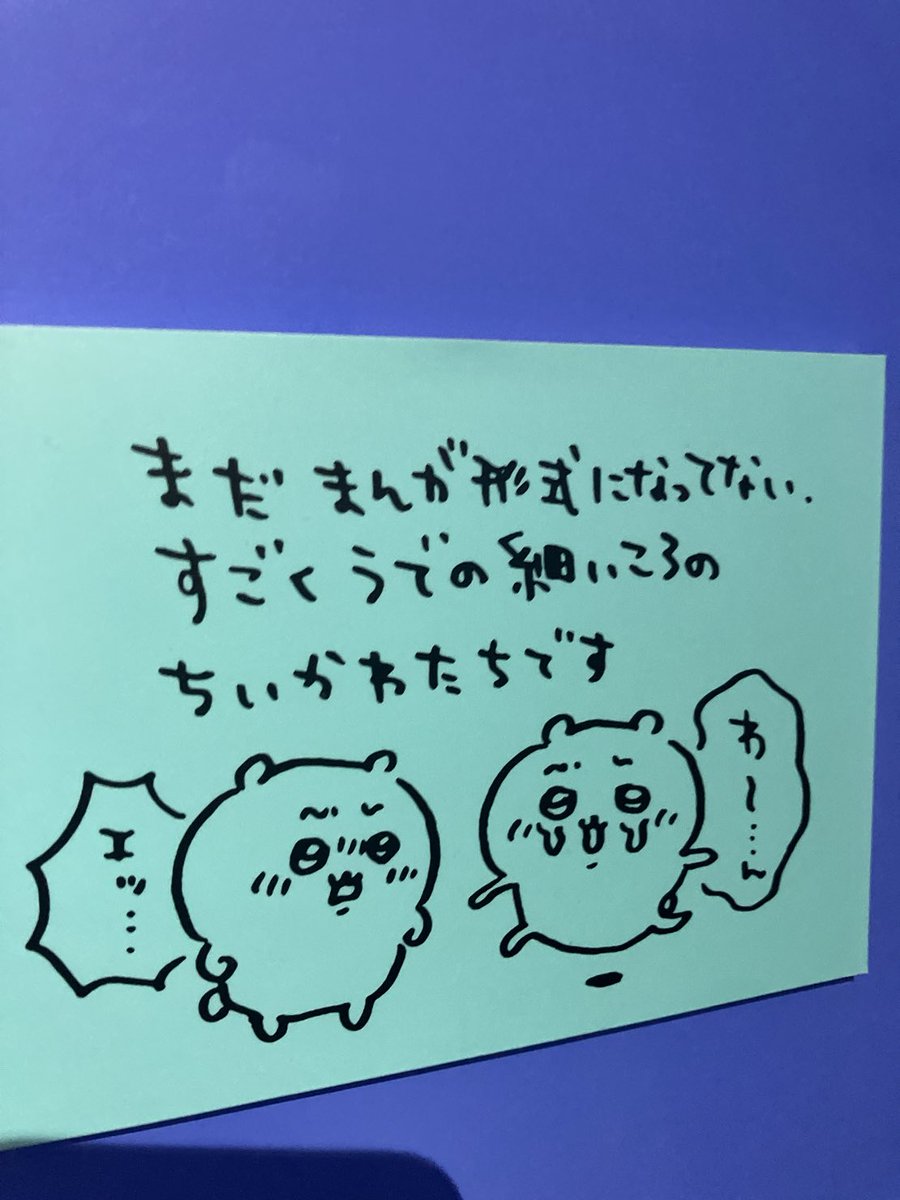 まだまんが形式になってない、
すごくうでの細いころの
ちいかわたちです
エッ…
わ〜……ん